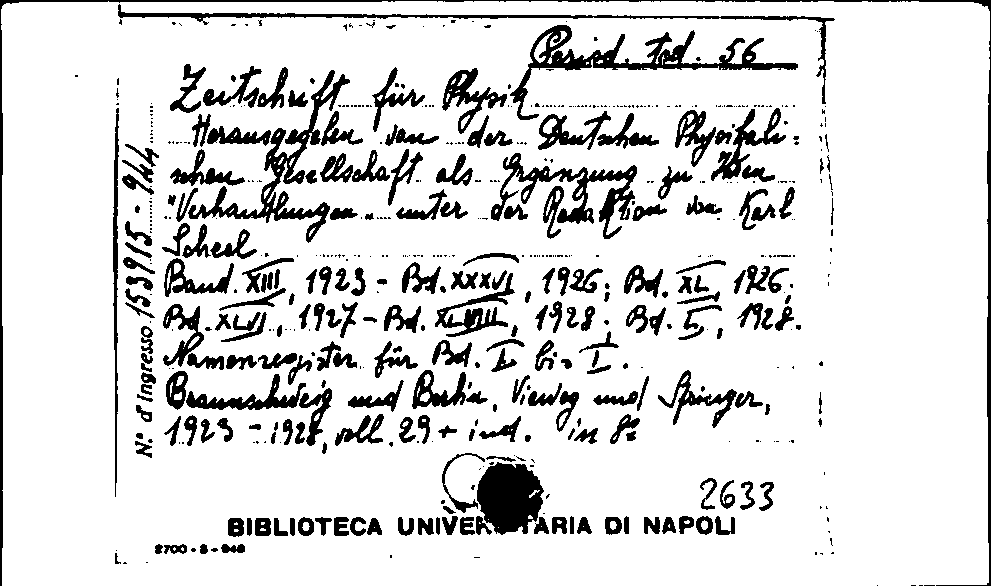 Period. ted. 56
Zeitschrift für Physik.
Herausgegeben von der Deutschen Physikali=
schen Gesellschaft als Ergänzung zu Ihren
"Verhandlungen" unter der Redaktion von Karl
Scheel.
Band. XIII, 1923 - Bd. XXXVI, 1926; Bd. XL, 1926;
Bd. XLVI, 1927 - Bd. XLVIII, 1928; Bd. L, 1928.
Namenregister für Bd. I bis L.
Braunschweig und Berlin, Vieweg und Springer,
1923 - 1928, voll. 29 + ind. in 8º
N.º d'Ingresso 153915-944
2633
BIBLIOTECA UNIVER TARIA DI NAPOLI
2700 - 8 - 948